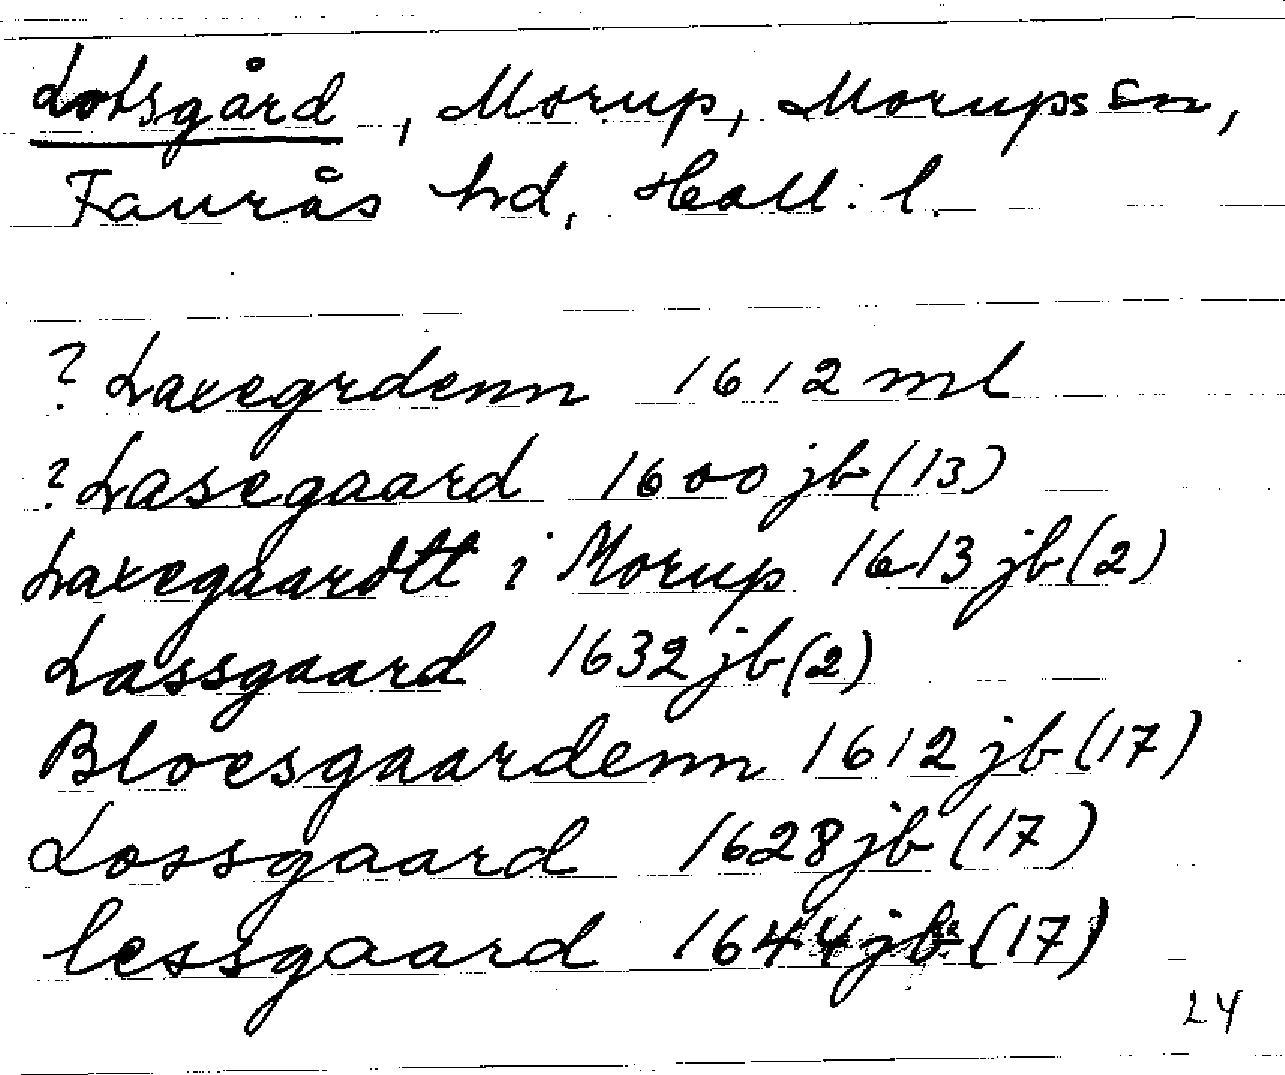 Lotsgård, Morup, Morups sn,
Faurås hd, Hall. l.
? Laxegrdenn 1612 ml
? Lasegaard 1600 jb (13)
Laxegaardtt i Morup 1613 jb (2)
Lassgaard 1632 jb (2)
Bloesgaardenn 1612 jb (17)
Lossgaard 1628 jb (17)
lessgaard 1644 jb (17)
24